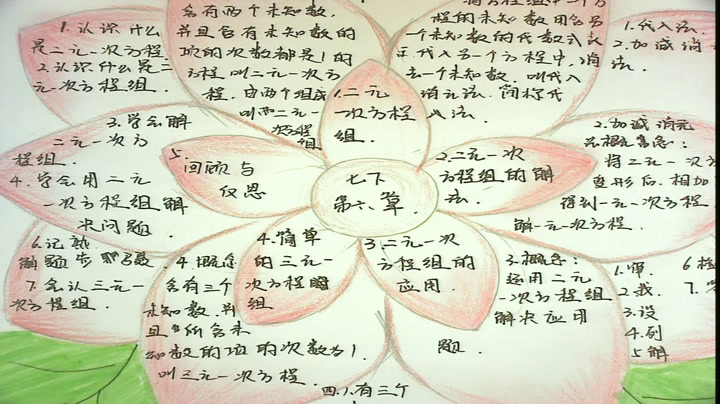 1.认识什么
是二元一次方程
2.认识什么是二
元一次方程组.
3.学会解
二元一次方
程组.
4.学会用二元
一次方程组解
决问题.
6.记熟
解题步骤
7.会认三元一
次方程组.
含有两个未知数,
并且含有未知数的
项的次数都是1的
方程,叫二元一次方
程.由两个组成
叫二元一
次方程
组
程的未知数用含另
一个未知数的代数式表
示.代入另一个方程中,消
去一个未知数.叫代入
消元法.简称代
入法.
1.代入法.
2.加减消
法.
2.加减消元
将二元一次方
变形后.相加
得到一元一次方程.
解一元一次方程.
1.二元
一次方程
组.
2.二元一次
方程组的解
法.
3.二元一次
方程组的
应用.
4.简单
的三元一
次方程
组
5.
回顾与
仅思
七下
第六章.
4.概念
含有三个
未知数,并
且所含未
知数的项的次数为1.
叫三元一次方程.
3.概念:
运用二元
一次方程组
解决应用
题.
1.审.
2.找.
3.设
4.列
5.解
6.检
7.答
四.1.有三个